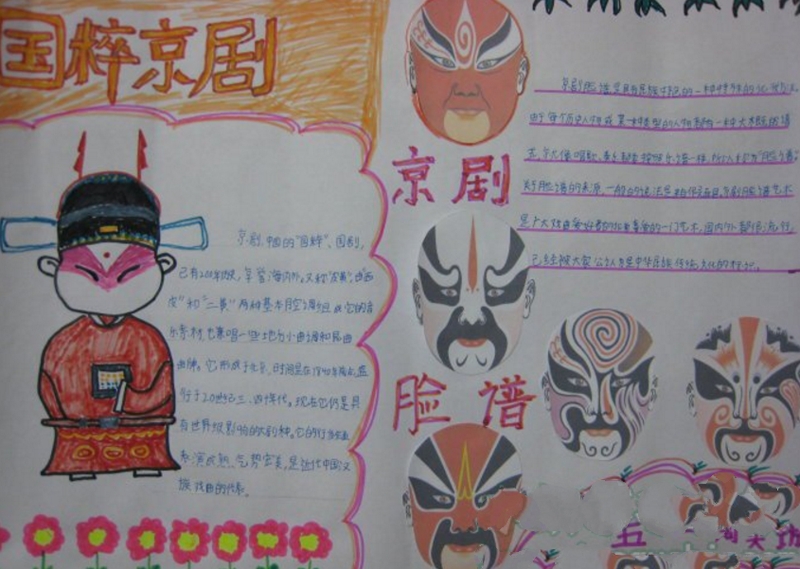 国粹京剧
京剧,中国的"国粹"、国剧,
已有200年历史,享誉海内外。又称"皮黄",由"西
皮"和"二黄"两种基本腔调组成它的音
乐素材,也兼唱一些地方小曲调和昆曲
曲牌。它形成于北京,时间是在1840年前后,盛
行于20世纪三、四十年代。现在它仍是具
有世界级影响的大剧种。它的行当全面
表演成熟、气势宏美,是近代中国汉
族戏曲的代表。
京剧
脸谱
京剧脸谱是具有民族特色的一种特殊的化妆方法
由于每个历史人物或某一种类型的人物都有一种大概的谱
式,就像唱歌、奏乐都要按照乐谱一样,所以称为"脸谱"
关于脸谱的来源,一般的说法是
是广大戏曲爱好者的一门艺术,国内外都很流行,
已经被大家公认为是中华民族传统文化的标识。
五